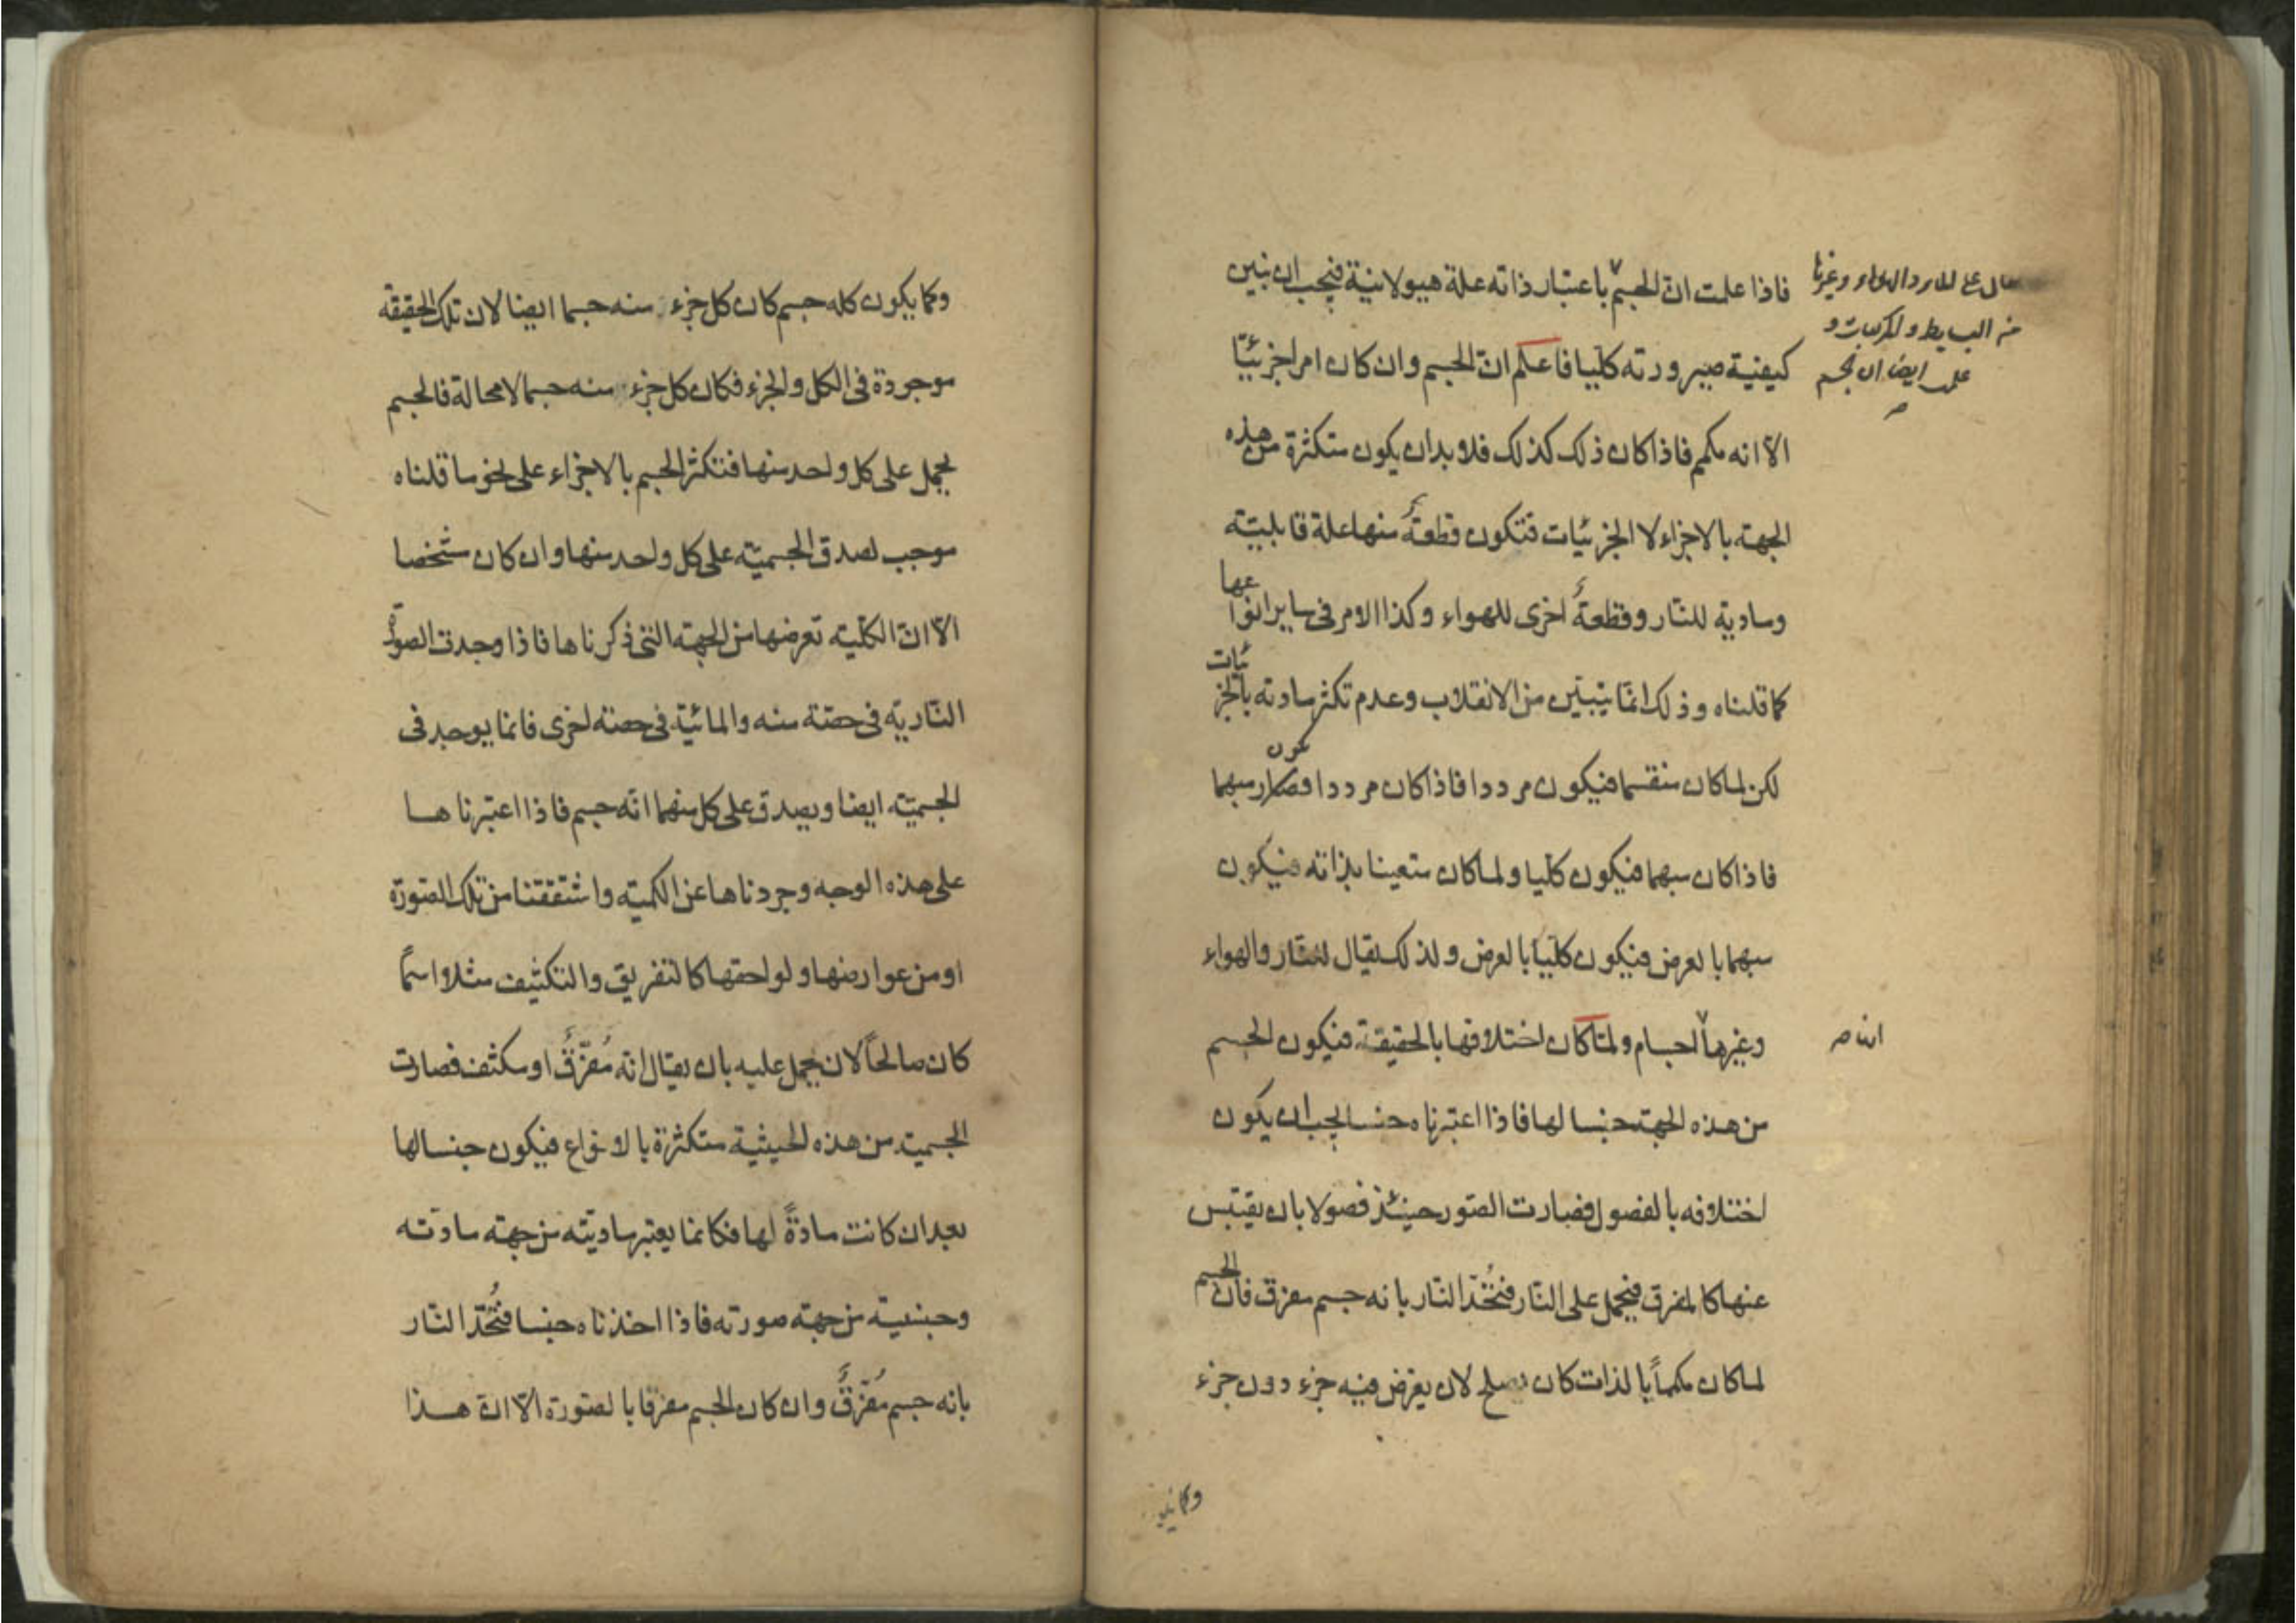 فاذا علمت ان الجسم باعتبار ذاته علة هيولانية فيجب ان نبين
كيفية صيرورته كليا فاعلم ان الجسم وان كان امرا جزئيّا
الّا انه مكمم فاذا كان ذلك كذلك فلا بد ان يكون متكثرة من هذه
الجهة بالاجزاء لا الجزئيات فتكون قطعةٌ منها علة قابليّة
وماديّة للنار وقطعةٌ اخرى للهواء وكذا الامر فى ساير انواعها
كما قلناه وذلك انّما يتبيّن من الانقلاب وعدم تكثر مادته بالجزئيات
لكن لما كان منقسما فيكون مرددا فاذا كان مرددا فصار مبهما
فاذا كان مبهما فيكون كليا ولما كان متعينا بذاته فيكون
مبهما بالعرض فيكون كليّا بالعرض ولذلك يقال للنّار والهواء
وغيرها اجسام ولمّا كان اختلافها بالحقيقة فيكون الجسم
من هذه الجهة جنسا لها فاذا اعتبرناه جنسا يجب ان يكون
اختلافه بالفصول فصارت الصّور حينئذ فصولا بان يقتبس
عنها كالمفرق فيحمل على النّار فتُحدّ النّار بانه جسم مفرق فان الجسم
لما كان مكمماً بالذات كان يصلح لان يفرض فيه جزء دون جزء
من البسايط والمركبات و
علمت ايضا ان الجسم
وكما يكون
وكما يكون كله جسم كان كل جزء منه جسما ايضا لان تلك الحقيقة
موجودة فى الكل والجزء فكان كل جزء منه جسما لا محالة فالجسم
يحمل على كل واحد منها فتكثر الجسم بالاجزاء على نحو ما قلناه
موجب لصدق الجسميّة على كل واحد منها وان كان شخصا
الّا انّ الكليّة تعرضها من الجهة التى ذكرناها فاذا وجدت الصورة
النّاريّة فى حصّة منه والمائيّة فى حصة اخرى فانما يوجد فى
الجسميّة ايضا ويصدق على كل منهما انّه جسم فاذا اعتبرناها
على هذه الوجه وجردناها عن الكميّة واشتققنا من تلك الصّورة
او من عوارضها ولواحقها كالتفريق والتكثيف مثلا اسماً
كان صالحاً لان يحمل عليه بان يقال انّه مُفرّقٌ او مكثف فصارت
الجسمية من هذه الحيثية متكثرة بالانواع فيكون جنسا لها
بعد ان كانت مادةً لها فكانما يعتبر ماديّته من جهة مادّته
وجنسية من جهة صورته فاذا اخذناه جنسا فتُحدّ النّار
بانه جسم مُفرّقٌ وان كان الجسم مفرقا بالصّورة الّا انّ هذا